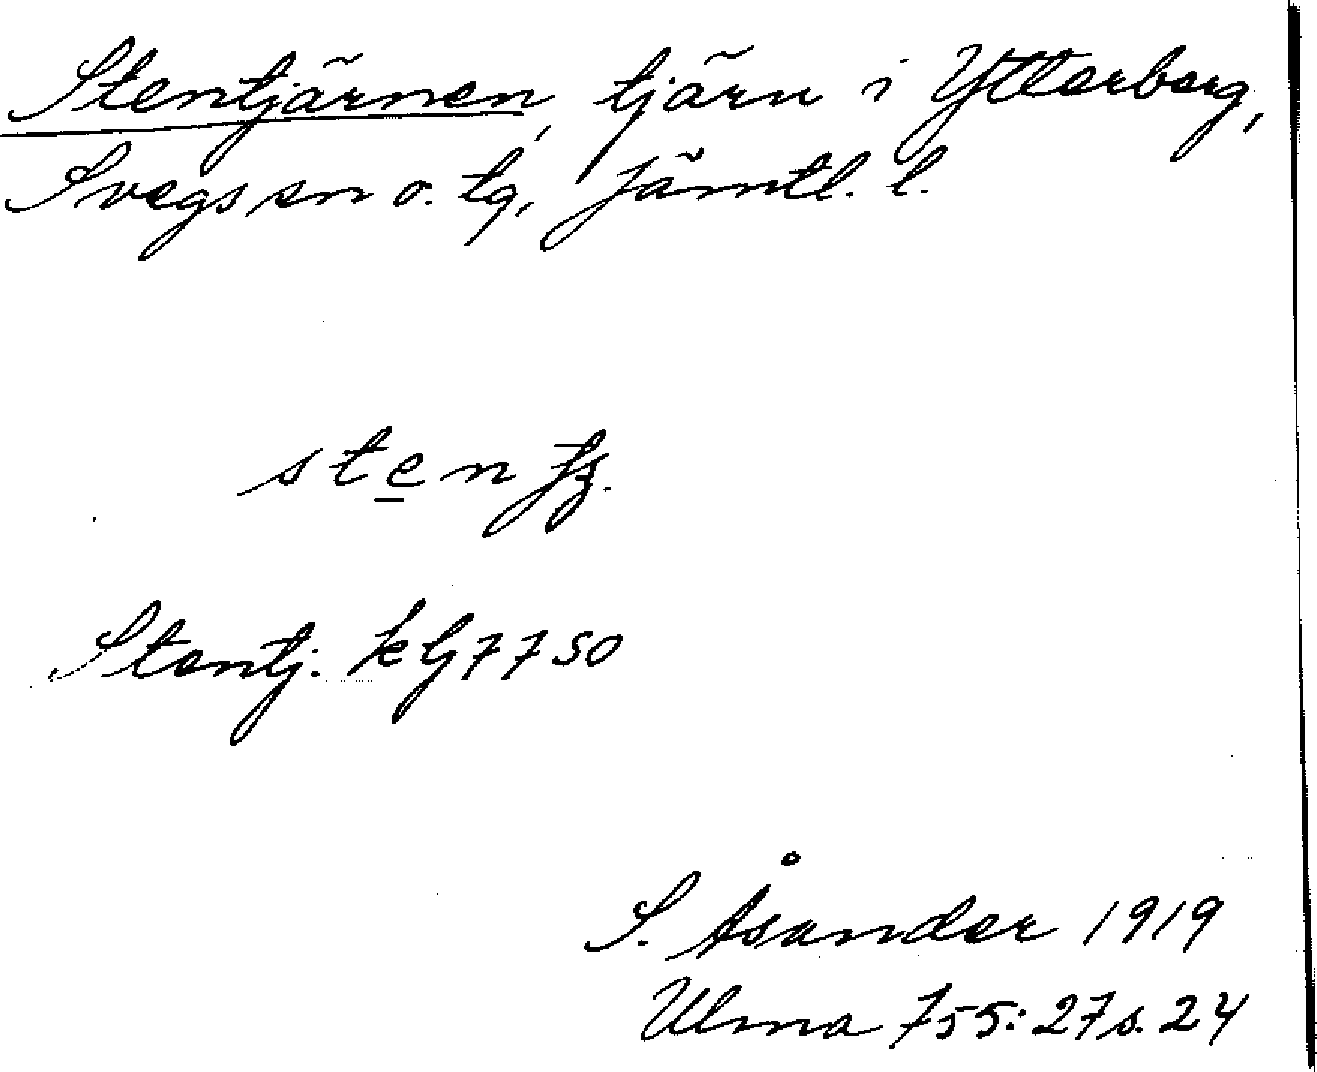 Stentjärnen, tjärn i Ytterberg,
Svegs sn o. tg, Jämtl. l.
sten
Stentj. kG7750
S. Åsander 1919
Ulma 755:27 s. 24